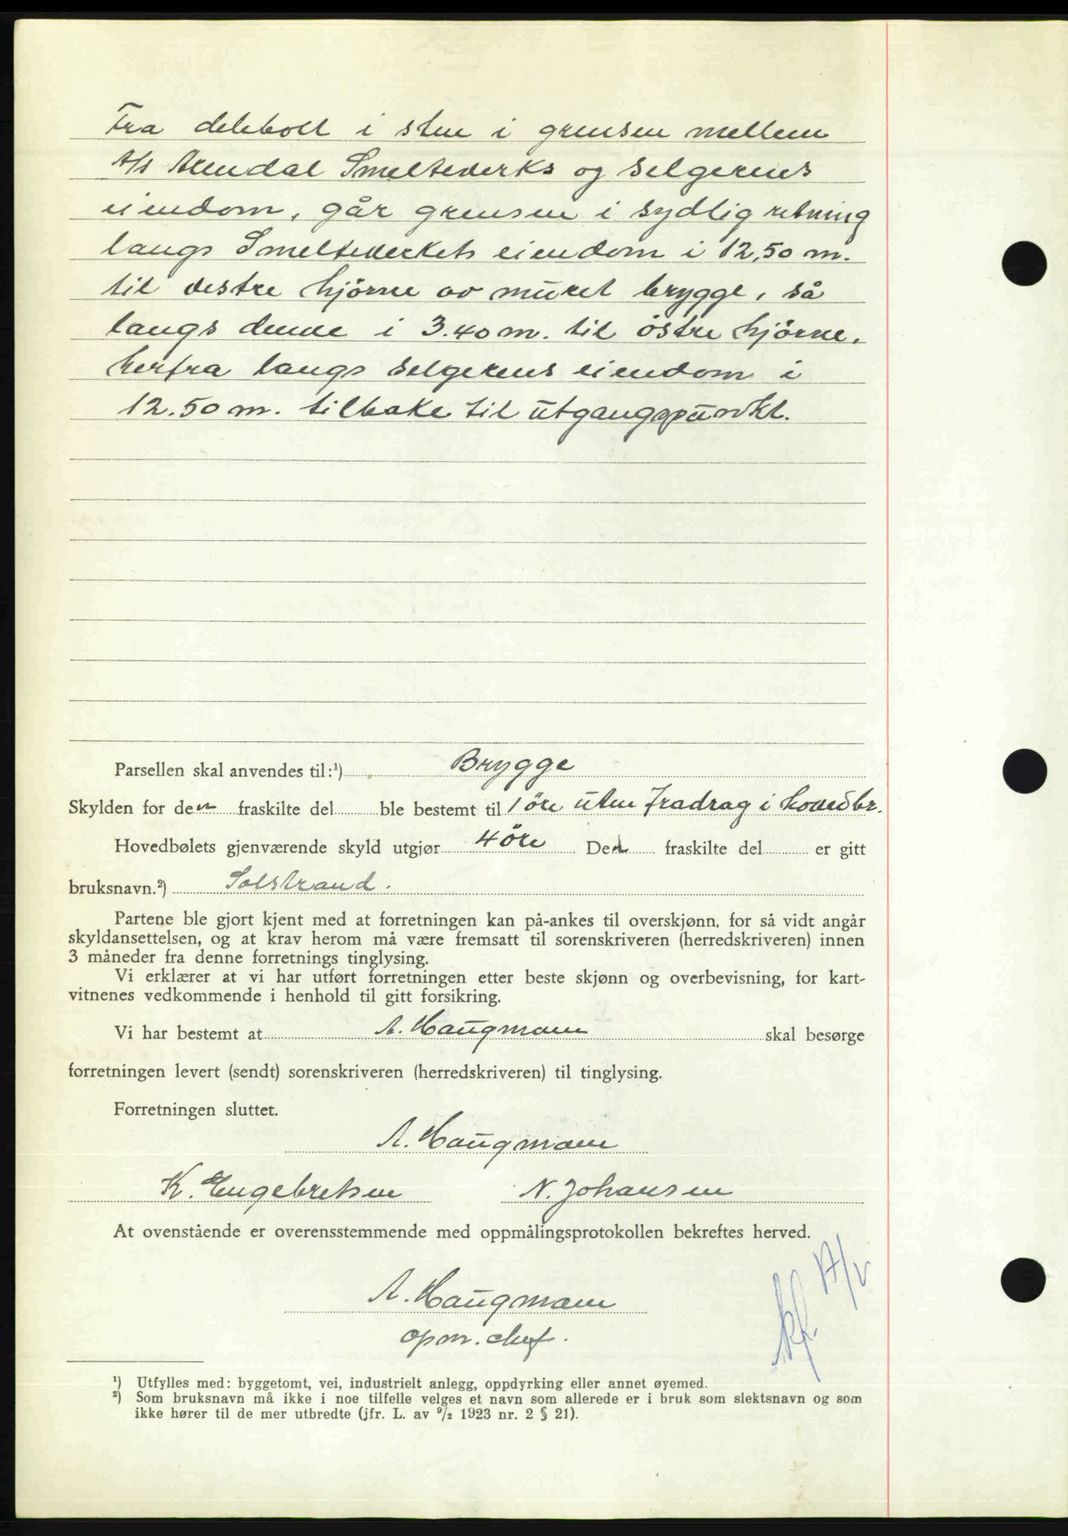 Fra delebolt i sten i grensen mellem
A/s Arendal Smelteverks og selgerens
eiendom, går grensen i sydlig retning
langs Smelteverkets eiendom i 12,50 m.
til vestre hjörne av muret brygge, så
langs denne i 3.40 m. til östre hjörne,
herfra langs selgerens eiendom i
12.50 m. tilbake til utgangspunkt.
Parsellen skal anvendes til:¹) Brygge
Skylden for den fraskilte del ble bestemt til 1 öre uten fradrag i hovedbr.
Hovedbølets gjenværende skyld utgjør 4 öre Den fraskilte del er gitt
bruksnavn.²) Solstrand.
Partene ble gjort kjent med at forretningen kan på-ankes til overskjønn, for så vidt angår
skyldansettelsen, og at krav herom må være fremsatt til sorenskriveren (herredskriveren) innen
3 måneder fra denne forretnings tinglysing.
Vi erklærer at vi har utført forretningen etter beste skjønn og overbevisning, for kart-
vitnenes vedkommende i henhold til gitt forsikring.
Vi har bestemt at A. Haugmann skal besørge
forretningen levert (sendt) sorenskriveren (herredskriveren) til tinglysing.
Forretningen sluttet.
A. Haugmann
K. Engebretsen N. Johansen
At ovenstående er overensstemmende med oppmålingsprotokollen bekreftes herved.
A. Haugmann
opm. chef.
¹) Utfylles med: byggetomt, vei, industrielt anlegg, oppdyrking eller annet øyemed.
²) Som bruksnavn må ikke i noe tilfelle velges et navn som allerede er i bruk som slektsnavn og som
ikke hører til de mer utbredte (jfr. L. av ⁹/₂ 1923 nr. 2 § 21).